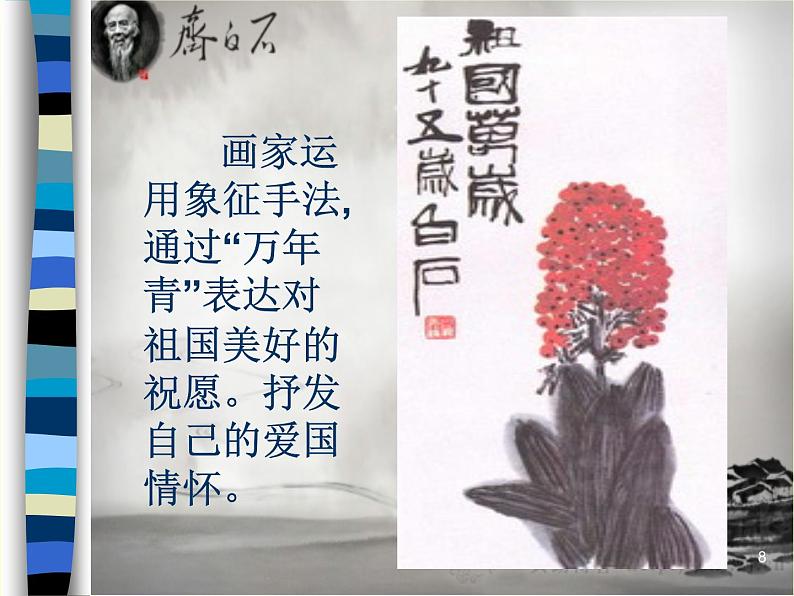 齊白石
画家运
用象征手法,
通过“万年
青”表达对
祖国美好的
祝愿。抒发
自己的爱国
情怀。
祖國萬歲
九十五歲白石
8